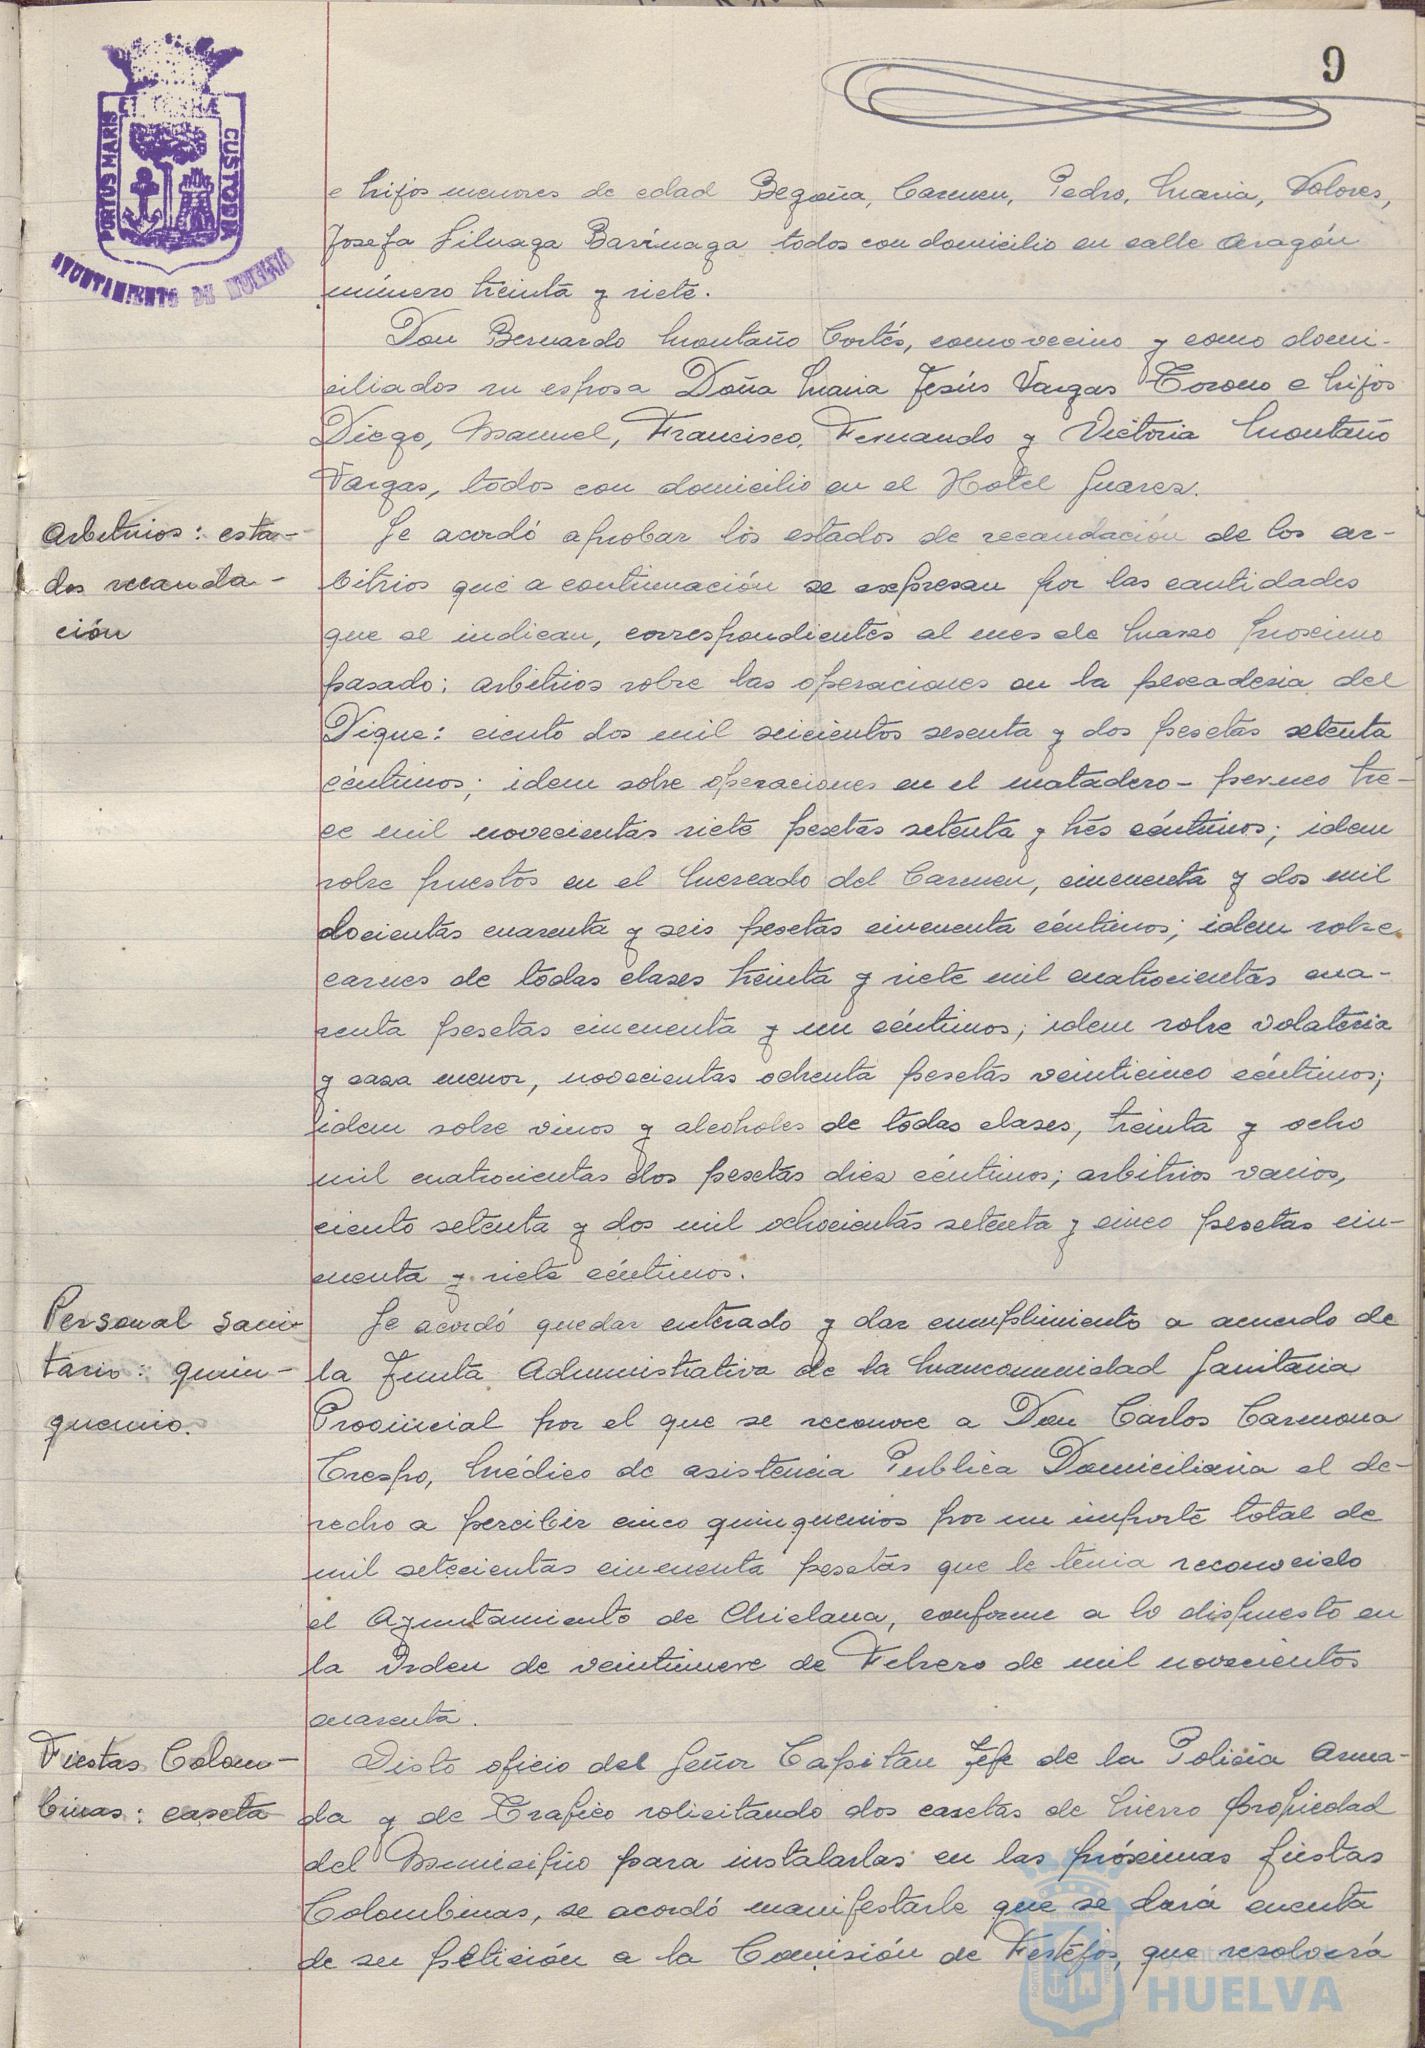 9
PORTUS MARIS
ET TERRÆ
CUSTODIA
AYUNTAMIENTO DE HUELVA
e hijos menores de edad Begoña, Carmen, Pedro, Maria, Dolores,
Josefa Siluaga Barínaga todos con domicilio en calle Aragón
número treinta y siete.
Don Bernardo Montaño Cortés, como vecino y como domi-
ciliados su esposa Doña Maria Jesús Vargas e hijos
Diego, Manuel, Francisco, Fernando y Victoria Montaño
Vargas, todos con domicilio en el Hotel Suarez.
Arbitrios: esta-
dos recauda-
ción
Se acordó aprobar los estados de recaudación de los ar-
bitrios que a continuación se expresan por las cantidades
que se indican, correspondientes al mes de Marzo proximo
pasado: arbitrios sobre las operaciones en la pescaderia del
Dique: ciento dos mil seicientos sesenta y dos pesetas setenta
céntimos; idem sobre operaciones en el matadero- perneo tre-
ce mil novecientas siete pesetas setenta y tres céntimos; idem
sobre puestos en el Mercado del Carmen, cincuenta y dos mil
docientas cuarenta y seis pesetas cincuenta céntimos; idem sobre
carnes de todas clases treinta y siete mil cuatrocientas cua-
renta pesetas cincuenta y un céntimos; idem sobre volateria
y caza menor, novecientas ochenta pesetas veinticinco céntimos;
idem sobre vinos y alcoholes de todas clases, treinta y ocho
mil cuatrocientas dos pesetas diez céntimos; arbitrios varios,
ciento setenta y dos mil ochocientas setenta y cinco pesetas cin-
cuenta y siete céntimos.
Personal sani-
tario: quin-
quenio.
Se acordó quedar enterado y dar cumplimiento a acuerdo de
la Junta Administrativa de la Mancomunidad Sanitaria
Provincial por el que se reconoce a Don Carlos Carmona
Crespo, Médico de asistencia Publica Domiciliaria el de-
recho a percibir cinco quinquenios por un importe total de
mil setecientas cincuenta pesetas que le tenia reconocido
el Ayuntamiento de Chiclana, conforme a lo dispuesto en
la Orden de veintinueve de Febrero de mil novecientos
cuarenta.
Fiestas Colom-
binas: caseta
Visto oficio del Señor Capitán Jefe de la Policia Arma-
da y de Trafico solicitando dos casetas de hierro propiedad
del Municipio para instalarlas en las próximas fiestas
Colombinas, se acordó manifestarle que se dará cuenta
de su petición a la Comisión de Festejos, que resolverá
Ayuntamiento de
HUELVA